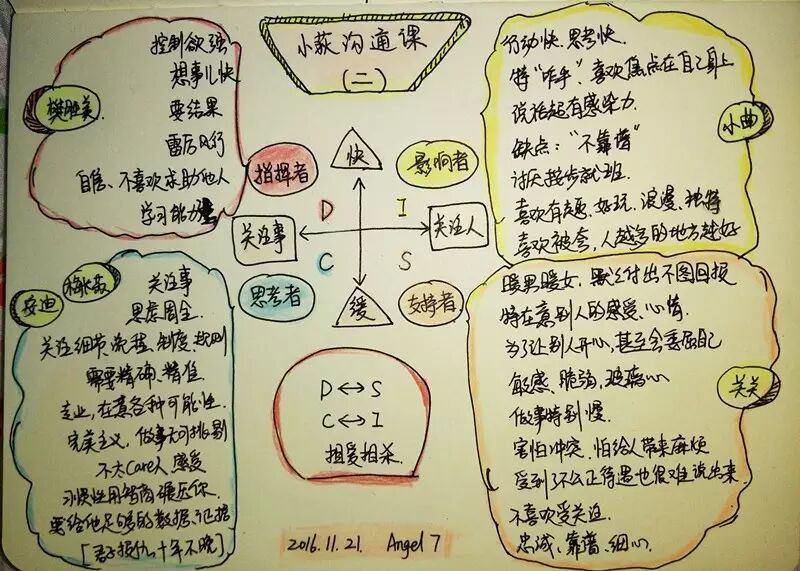 小荻沟通课
(二)
樊胜美
控制欲强
想事儿快
要结果
雷厉风行
自信、不喜欢求助他人
学习能力
指挥者
影响者
快
D
I
关注事
关注人
C
S
思考者
支持者
缓
小曲
行动快.思考快.
特“咋乎”喜欢焦点在自己身上
说话超有感染力.
缺点:“不靠谱”
讨厌按步就班.
喜欢有趣、好玩、浪漫、独特
喜欢被夸,人越多的地方越好
安迪
关注事
思虑周全.
关注细节、流程、制度、规则
需要精确、精准
专业,在意各种可能性.
完美主义,做事无可挑剔
不太care人感受
习惯性用智商碾压你.
要给他足够的数据、证据
[君子报仇,十年不晚]
D↔S
C↔I
相爱相杀.
2016.11.21. Angel 7
关关
暖男暖女,默默付出不图回报
特在意别人的感受、心情.
为了让别人开心,甚至会委屈自己
敏感、脆弱,玻璃心
做事特别慢.
害怕冲突,怕给人带来麻烦
受到了不公正待遇也很难说出来.
不喜欢受关注.
忠诚、靠谱、细心.